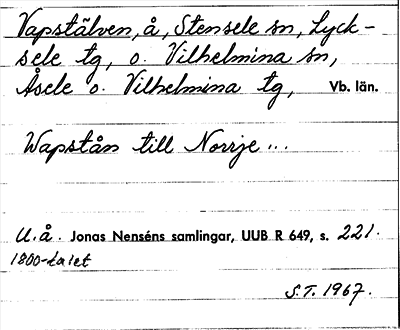 Vapstälven, å, Stensele sn, Lyck-
sele tg, o. Vilhelmina sn,
Åsele o. Vilhelmina tg, Vb. län.
Wapstån till Norrje...
U.å. Jonas Nenséns samlingar, UUB R 649, s. 221.
1800-talet
S.T. 1967.